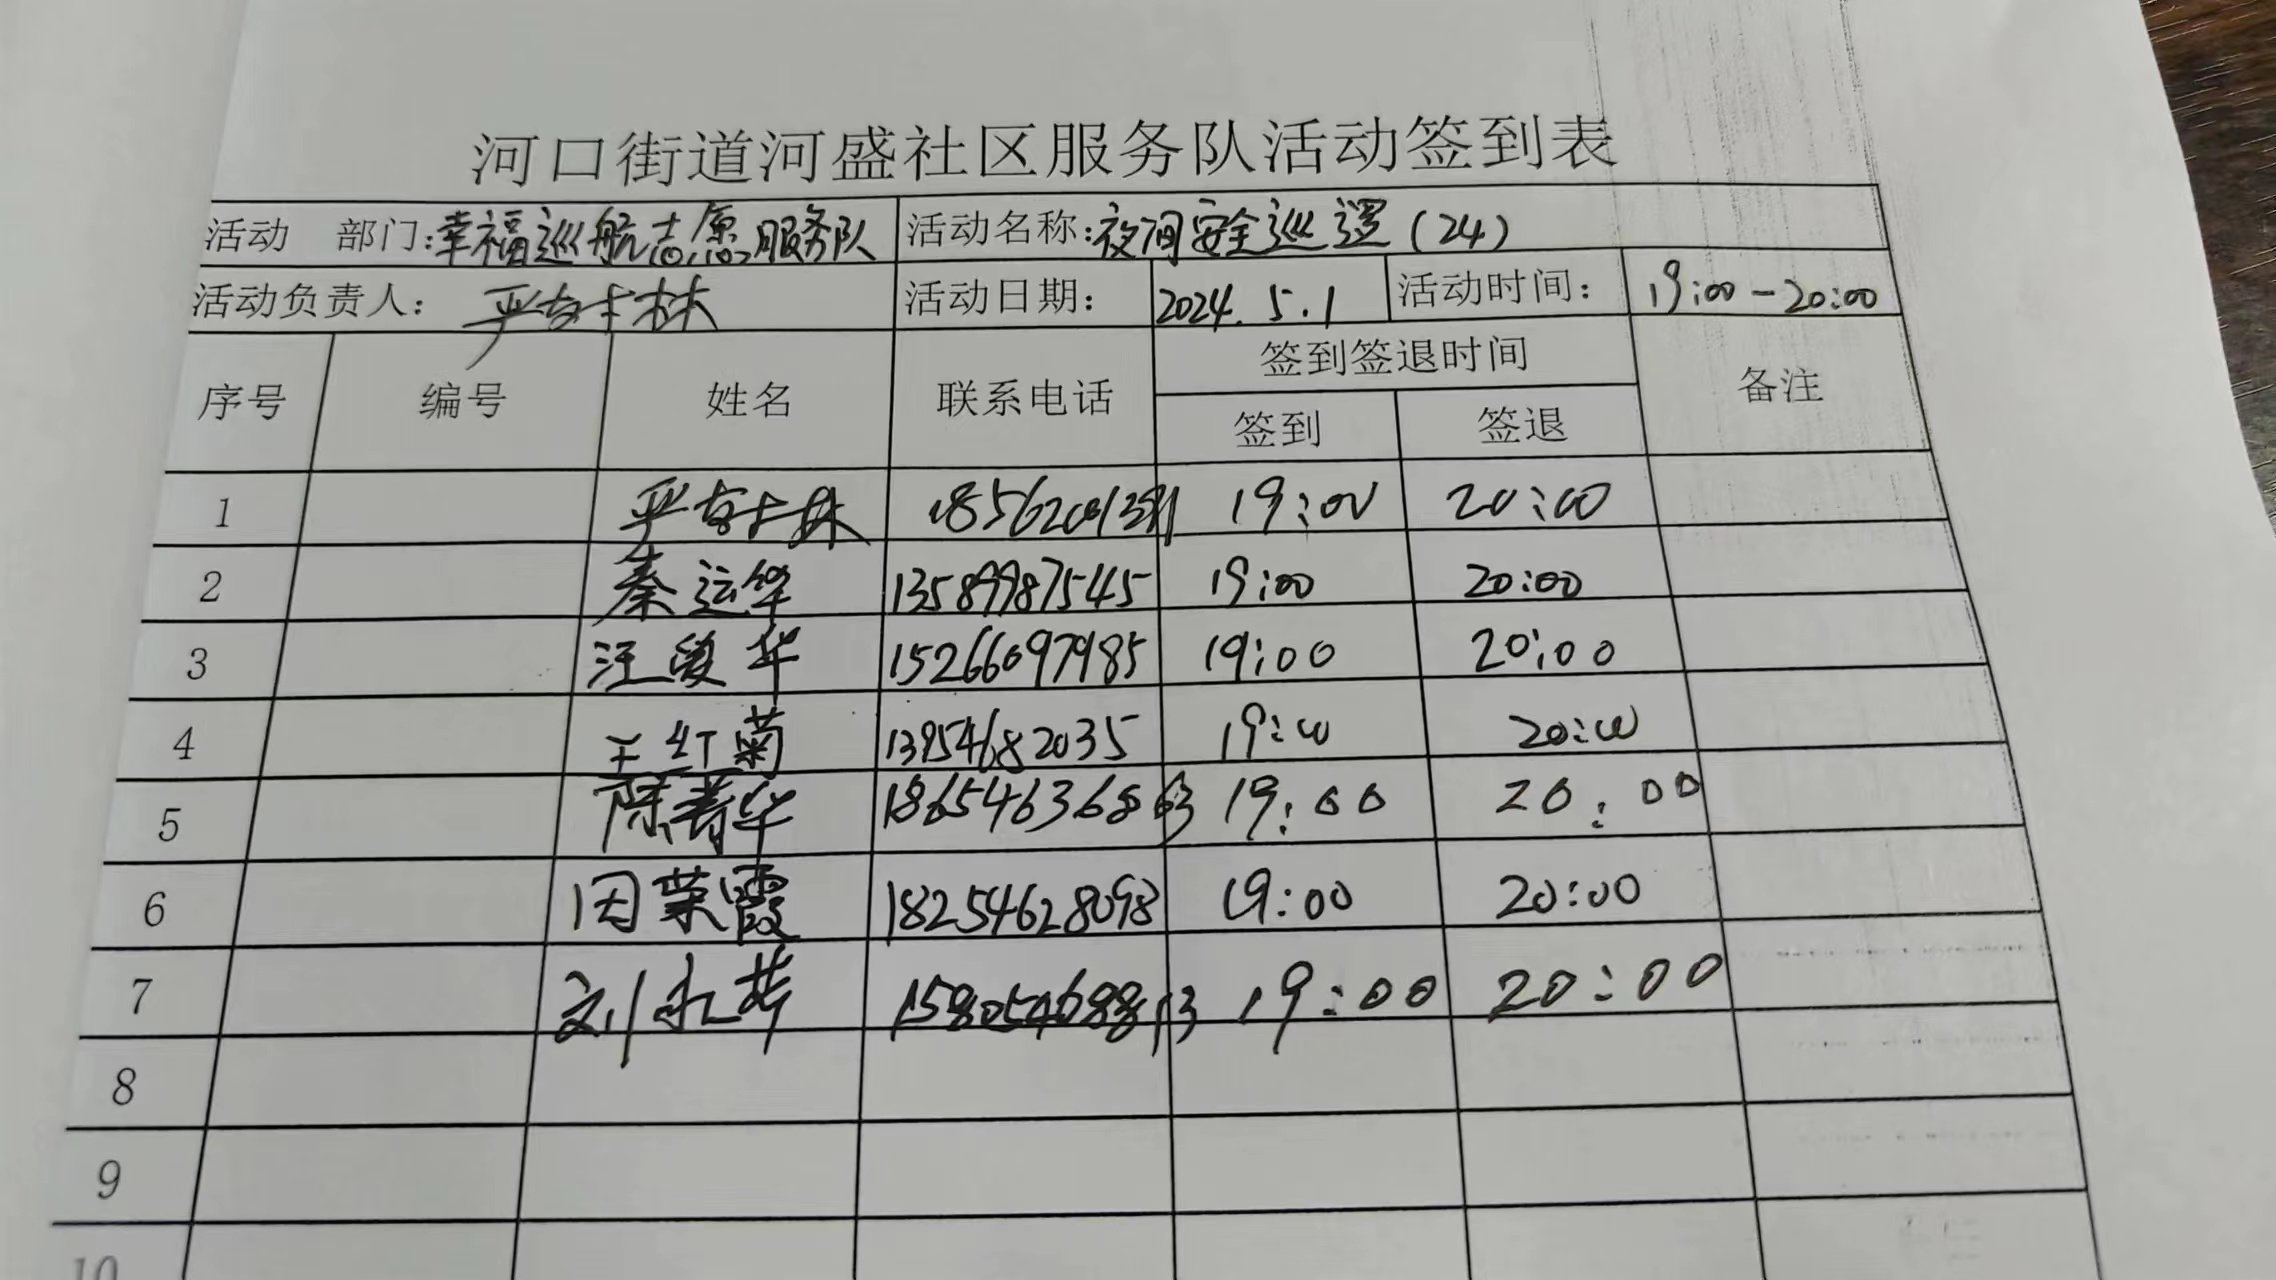 河口街道河盛社区服务队活动签到表
活动 部门:幸福巡航志愿服务队 活动名称:夜间安全巡逻(24)
活动负责人: 严 林 活动日期: 2024.5.1 活动时间: 19:00-20:00
序号 编号 姓名 联系电话 签到签退时间 备注
签到 签退
1 严 林 19:00 20:00
2 秦运华 13589987545 19:00 20:00
3 汪爱华 15266097985 19:00 20:00
4 王红菊 13954682035 19:00 20:00
5 陈菁华 18654636863 19:00 20:00
6 田荣霞 18254628098 19:00 20:00
7 刘永芹 15805468813 19:00 20:00
8
9
10